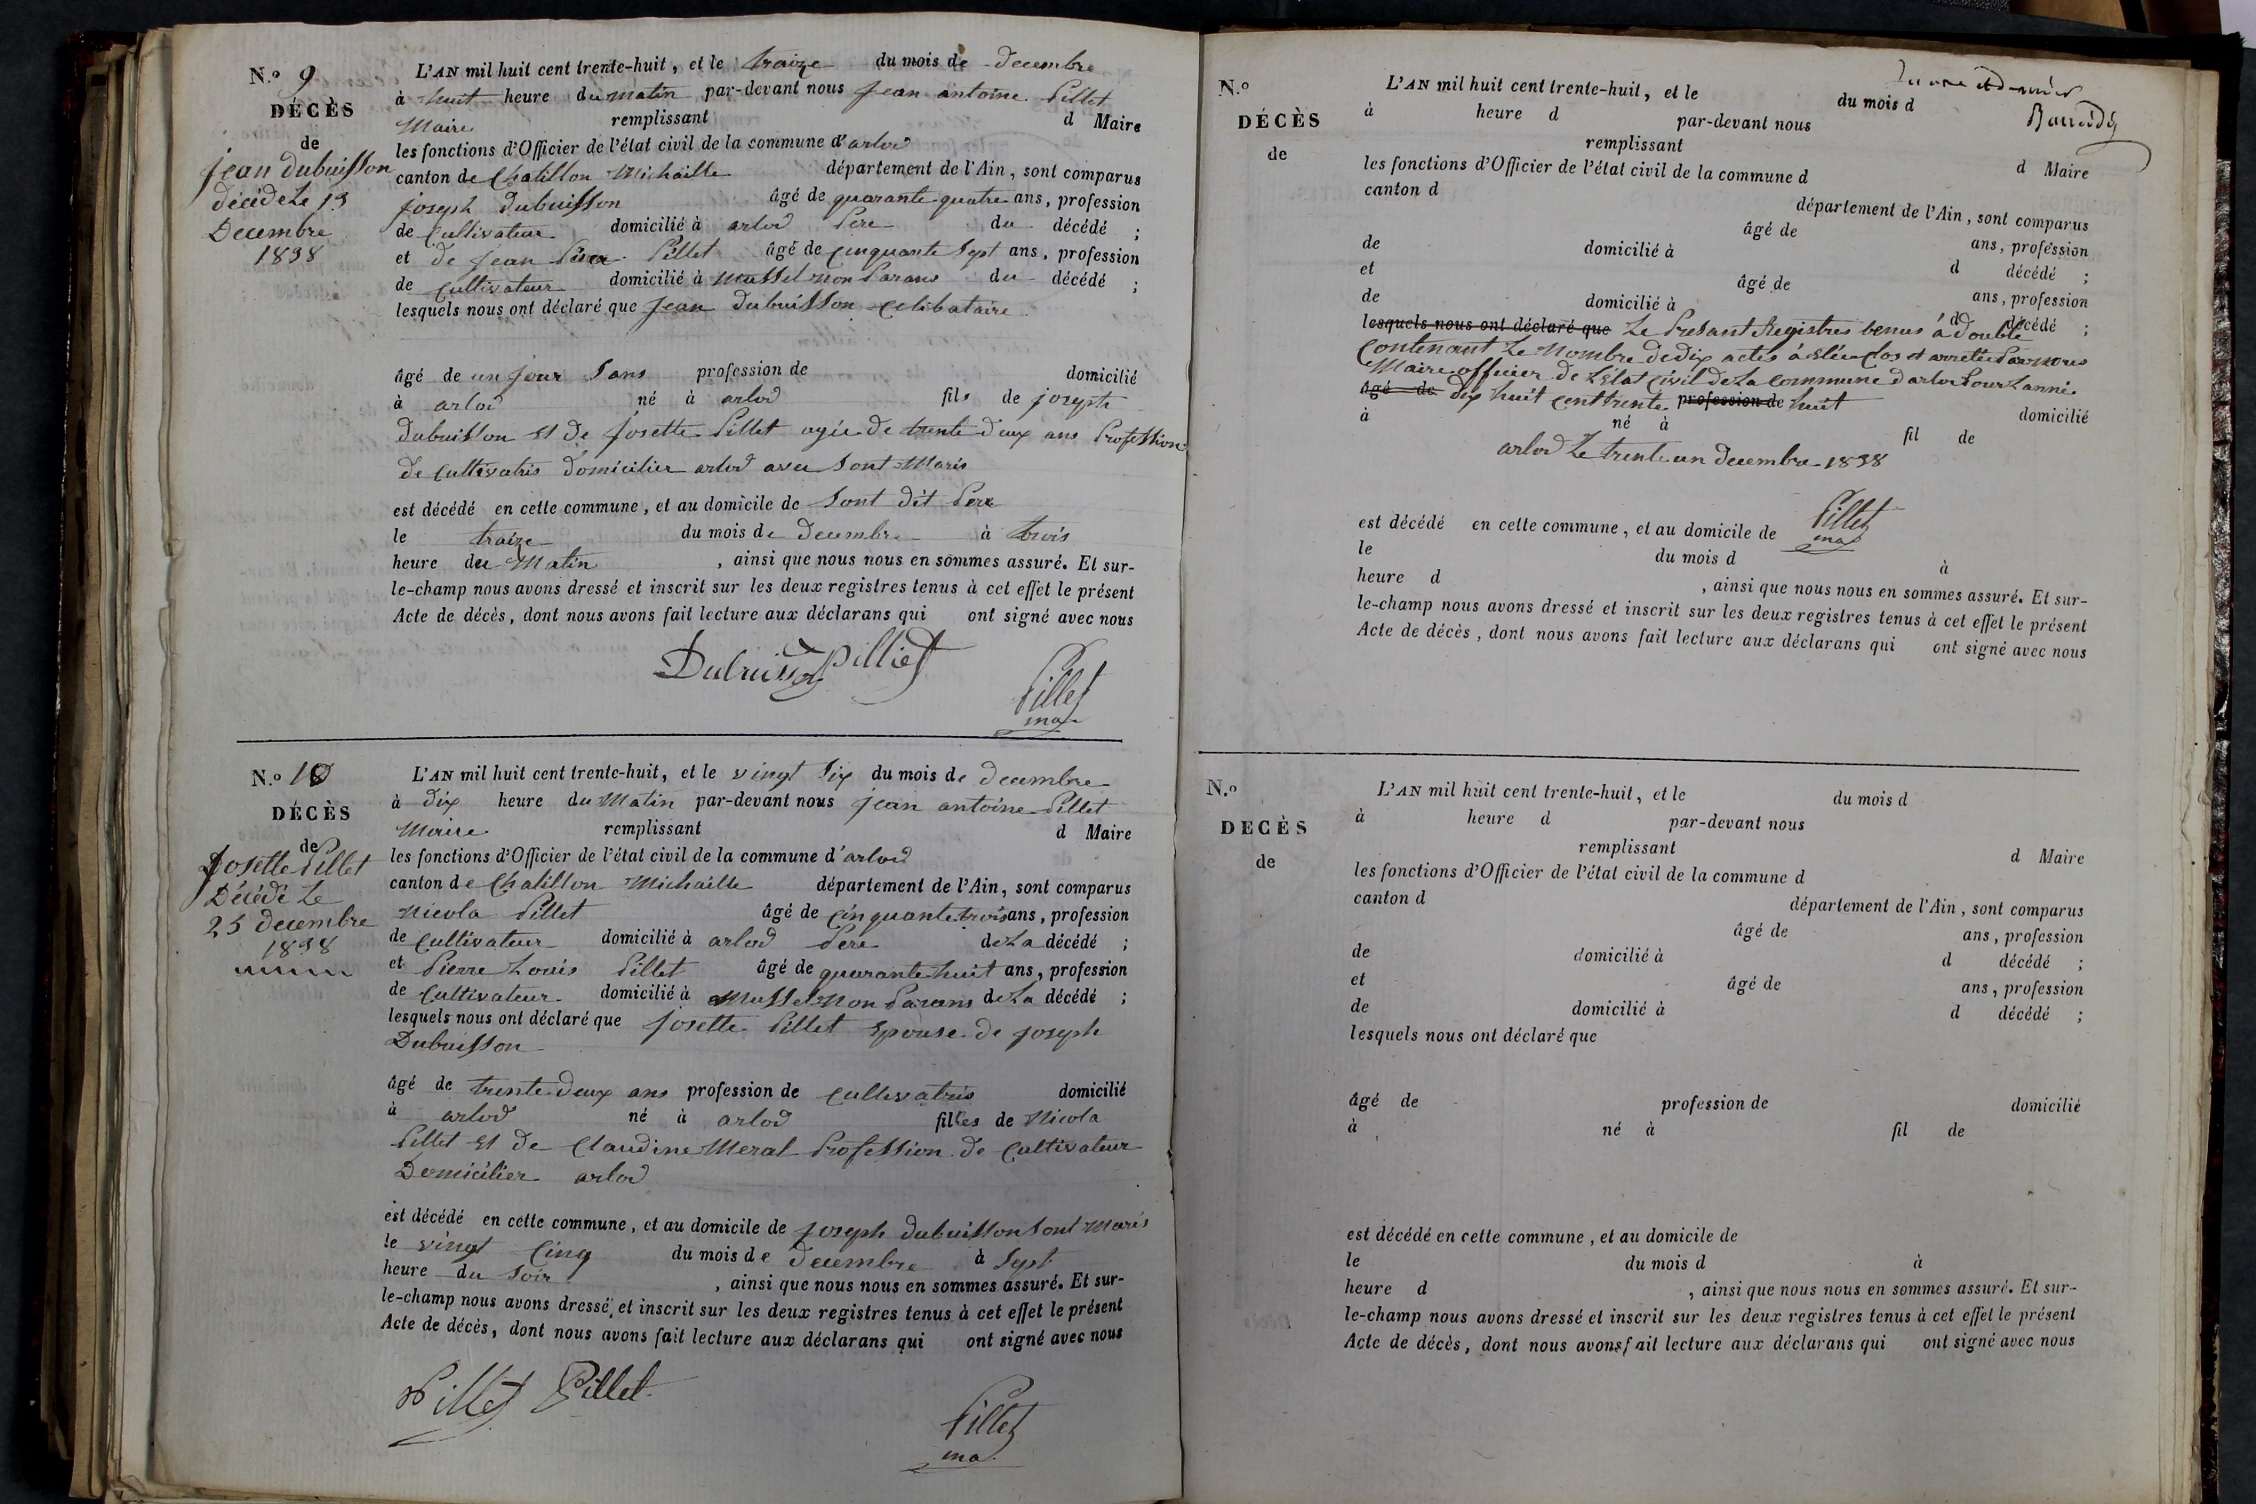 N.o 9
DÉCÈS
de
jean dubuisson
décédé Le 13
Decembre
1838
L'AN mil huit cent trente-huit, et le traize du mois de decembre
à huit heure du matin par-devant nous jean antoine Pillet
Maire remplissant d Maire
les fonctions d'Officier de l'état civil de la commune d'arlod
canton de Chatillon Michaille département de l'Ain, sont comparus
joseph dubuisson âgé de quarante quatre ans, profession
de Cultivateur domicilié à arlod Pere du décédé ;
et de jean Pillet âgé de cinquante Sept ans, profession
de Cultivateur domicilié à Mussel non Parans du décédé ;
lesquels nous ont déclaré que jean dubuisson celibataire
âgé de un jour Sans profession de domicilié
à arlod né à arlod fils de joseph
dubuisson Et de josette Pillet agée de trente deux ans Profession
de cultivatris domicilier arlod avec Sont Maris
est décédé en cette commune, et au domicile de Sont dit Pere
le traize du mois de Decembre à trois
heure du Matin , ainsi que nous nous en sommes assuré. Et sur-
le-champ nous avons dressé et inscrit sur les deux registres tenus à cet effet le présent
Acte de décès, dont nous avons fait lecture aux déclarans qui ont signé avec nous
Dubuisson Pilliet
Pillet
ma
N.o 10
DÉCÈS
de
Josette Pillet
Décédé Le
25 decembre
1838
L'AN mil huit cent trente-huit, et le vingt Six du mois de decembre
à dix heure du Matin par-devant nous jean antoine Pillet
Maire remplissant d Maire
les fonctions d'Officier de l'état civil de la commune d'arlod
canton de Chatillon Michaille département de l'Ain, sont comparus
Nicola Pillet âgé de cinquante trois ans, profession
de Cultivateur domicilié à arlod Pere de La décédé ;
et Pierre Louis Pillet âgé de quarante huit ans, profession
de Cultivateur domicilié à Mussel Non Parans de La décédé ;
lesquels nous ont déclaré que josette Pillet Epouse de joseph
Dubuisson
âgé de trente deux ans profession de cultivatris domicilié
à arlod né à arlod filles de Nicola
Pillet Et de Claudine Meral Profession de Cultivateur
Domicilier arlod
est décédé en cette commune, et au domicile de joseph dubuisson Sont Maris
le vingt Cinq du mois de decembre à Sept
heure du Soir , ainsi que nous nous en sommes assuré. Et sur-
le-champ nous avons dressé, et inscrit sur les deux registres tenus à cet effet le présent
Acte de décès, dont nous avons fait lecture aux déclarans qui ont signé avec nous
Pillet Pillet
Pillet
ma
N.o
DÉCÈS
de
L'AN mil huit cent trente-huit, et le du mois d
à heure d par-devant nous
remplissant d Maire
les fonctions d'Officier de l'état civil de la commune d
canton d département de l'Ain, sont comparus
âgé de ans, profession
de domicilié à d décédé ;
et âgé de ans, profession
de domicilié à d décédé ;
lesquels nous ont déclaré que Le Presant Registres tenus à double
Contenant Le Nombre de dix actes à Eté Clos et arretté Par nous
Maire officier de L'état Civil de La Commune d'arlod Pour Lanné
âgé de dix huit cent trente profession de huit
à né à domicilié
fil de
arlod Le trente un decembre 1838
Pillet
ma
est décédé en cette commune, et au domicile de
le du mois d à
heure d , ainsi que nous nous en sommes assuré. Et sur-
le-champ nous avons dressé et inscrit sur les deux registres tenus à cet effet le présent
Acte de décès, dont nous avons fait lecture aux déclarans qui ont signé avec nous
N.o
DECÈS
de
L'AN mil huit cent trente-huit, et le du mois d
à heure d par-devant nous
remplissant d Maire
les fonctions d'Officier de l'état civil de la commune d
canton d département de l'Ain, sont comparus
âgé de ans, profession
de domicilié à d décédé ;
et âgé de ans, profession
de domicilié à d décédé ;
lesquels nous ont déclaré que
âgé de profession de domicilié
à né à fil de
est décédé en cette commune, et au domicile de
le du mois d à
heure d , ainsi que nous nous en sommes assuré. Et sur-
le-champ nous avons dressé et inscrit sur les deux registres tenus à cet effet le présent
Acte de décès, dont nous avons fait lecture aux déclarans qui ont signé avec nous